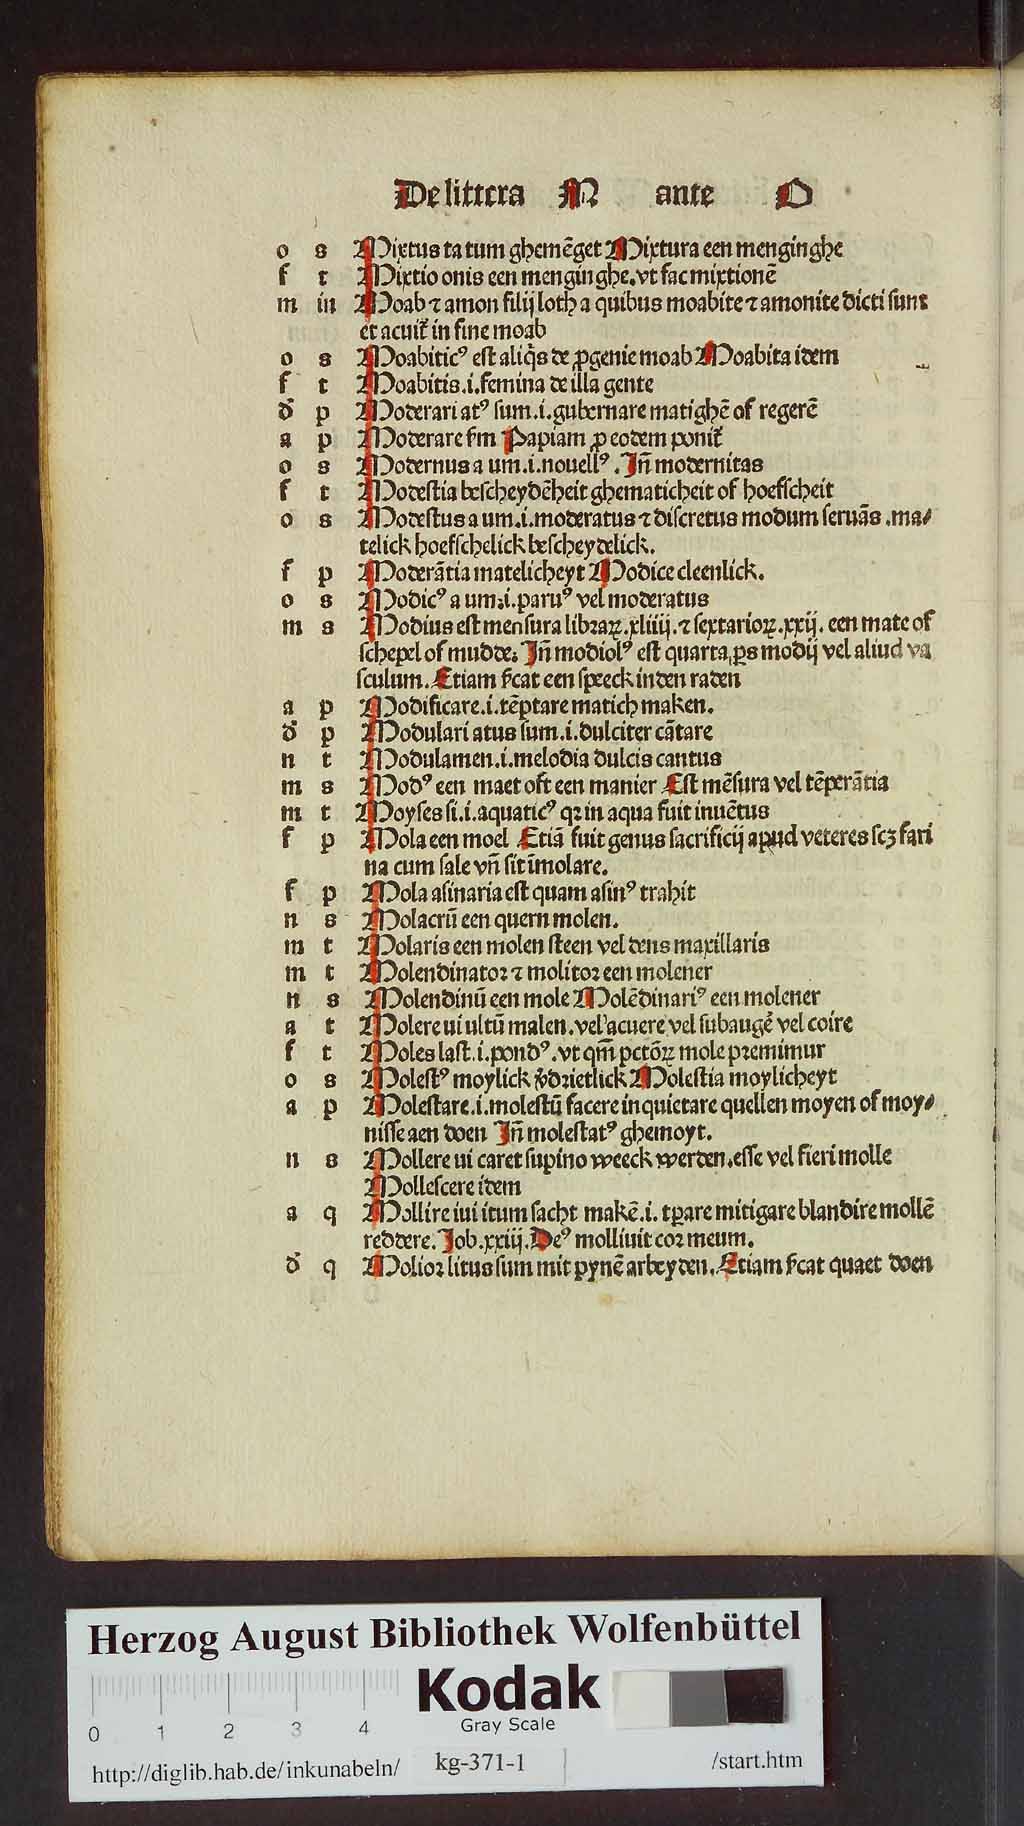 De littera M ante O
o s Mixtus ta tum ghemēget Mixtura een menginghe
f t Mixtio onis een menginghe. vt fac mixtionē
m in Moab ⁊ amon filij loth a quibus moabite ⁊ amonite dicti sunt
et acuit᷑ in fine moab
o s Moabiticꝰ est aliq̄s de ꝓgenie moab Moabita idem
f t Moabitis .i. femina de illa gente
d̓ p Moderari atꝰ sum .i. gubernare matighē of regerē
a p Moderare s̄m Papiam ꝓ eodem ponit᷑
o s Modernus a um .i. nouellꝰ. Jn̄ modernitas
f t Modestia bescheydēheit ghematicheit of hoefscheit
o s Modestus a um .i. moderatus ⁊ discretus modum seruās. ma⸗
telick hoefschelick bescheydelick.
f p Moderātia matelicheyt Modice cleenlick.
o s Modicꝰ a um .i. paruꝰ vel moderatus
m s Modius est mensura libraꝝ .xliiij. ⁊ sextarioꝝ .xxij. een mate of
schepel of mudde: Jn̄ modiolꝰ est quarta ꝑs modij vel aliud va
sculum. Etiam s̄cat een speeck in den raden
a p Modificare .i. tēptare matich maken.
d̓ p Modulari atus sum .i. dulciter cātare
n t Modulamen .i. melodia dulcis cantus
m s Modꝰ een maet oft een manier Est mēsura vel tēperātia
m t Moyses si .i. aquaticꝰ qꝛ in aqua fuit inuētus
f p Mola een moel Etiā fuit genus sacrificij apud veteres scꝫ fari
na cum sale vn̄ sit īmolare.
f p Mola asinaria est quam asinꝰ trahit
n s Molacrū een quern molen.
m t Molaris een molen steen vel dens maxillaris
m t Molendinator ⁊ molitor een molener
n s Molendinū een mole Molēdinariꝰ een molener
a t Molere ui ultū malen. vel acuere vel subauge᷑ vel coire
f t Moles last .i. pondꝰ. vt qm̄ pctōꝝ mole premimur
o s Molestꝰ moylick v̓drietlick Molestia moylicheyt
a p Molestare .i. molestū facere inquietare quellen moyen of moy⸗
nisse aen doen Jn̄ molestatꝰ ghemoyt.
n s Mollere ui caret supino weeck werden. esse vel fieri molle
Mollescere idem
a q Mollire iui itum sacht makē .i. tꝑare mitigare blandire mollē
reddere. Job .xxiij. Deꝰ molliuit cor meum.
d̓ q Molior litus sum mit pynē arbeyden. Etiam s̄cat quaet doen
Herzog August Bibliothek Wolfenbüttel
Kodak
Gray Scale
0 1 2 3 4
http://diglib.hab.de/inkunabeln/ kg-371-1 /start.htm